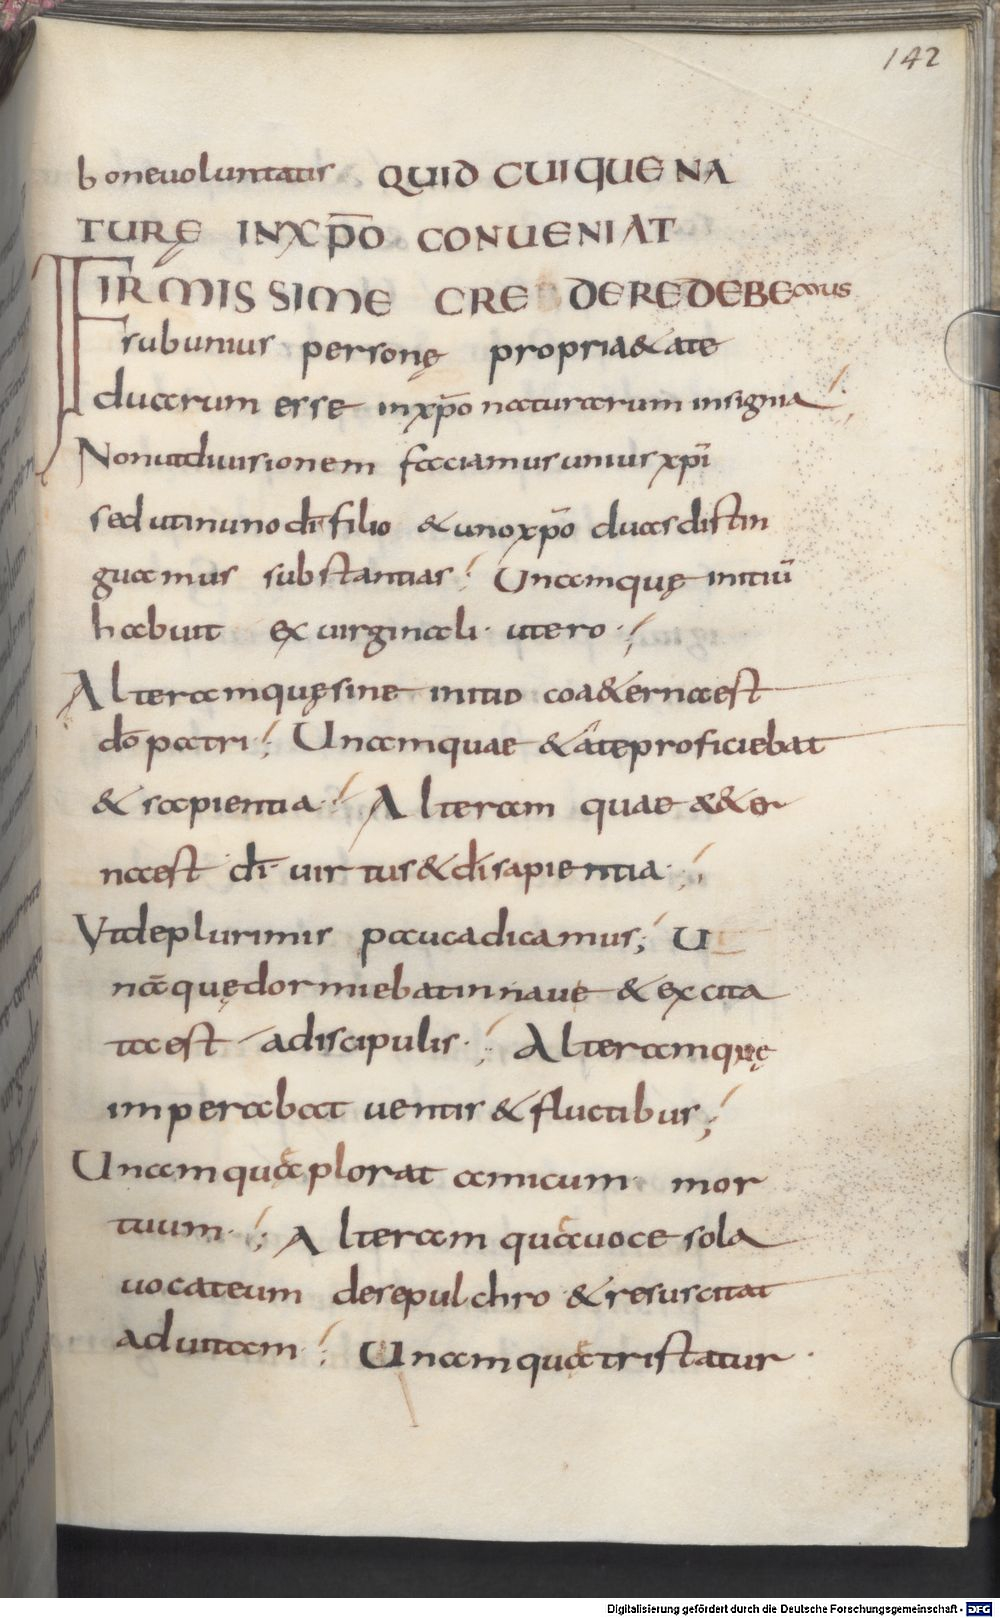 142
bonevoluntatis QUID CUIQUE NA
TURĘ IN XP̄O CONUENIAT
FIRMISSIME CREDERE DEBEmus
sub unius personę propria&ate
duarum esse in xp̄o naturarum insignia
Non ut diuisionem faciamus unius xp̄i
sed ut in uno dī filio & uno xp̄o duas distin
guamus substantias; Unamquę initiū
habuit ex uirginali utero;
Alteramquę sine initio coa&erna est
dō patri; Unamquae &ate proficiebat
& sapientia; Alteram quae a&er
na est dī uirtus & dī sapientia;
Vt de plurimis pauca dicamus; U
nāquę dormiebat in naue & excita
ta est a discipulis; Alteramquę
imperabat uentis & fluctibus;
Unamqua plorat amicum mor
tuum; Alteram qua uoce sola
uocat eum de sepulchro & resuscitat
ad uitam; Unamqua tristatur
Digitalisierung gefördert durch die Deutsche Forschungsgemeinschaft - DFG